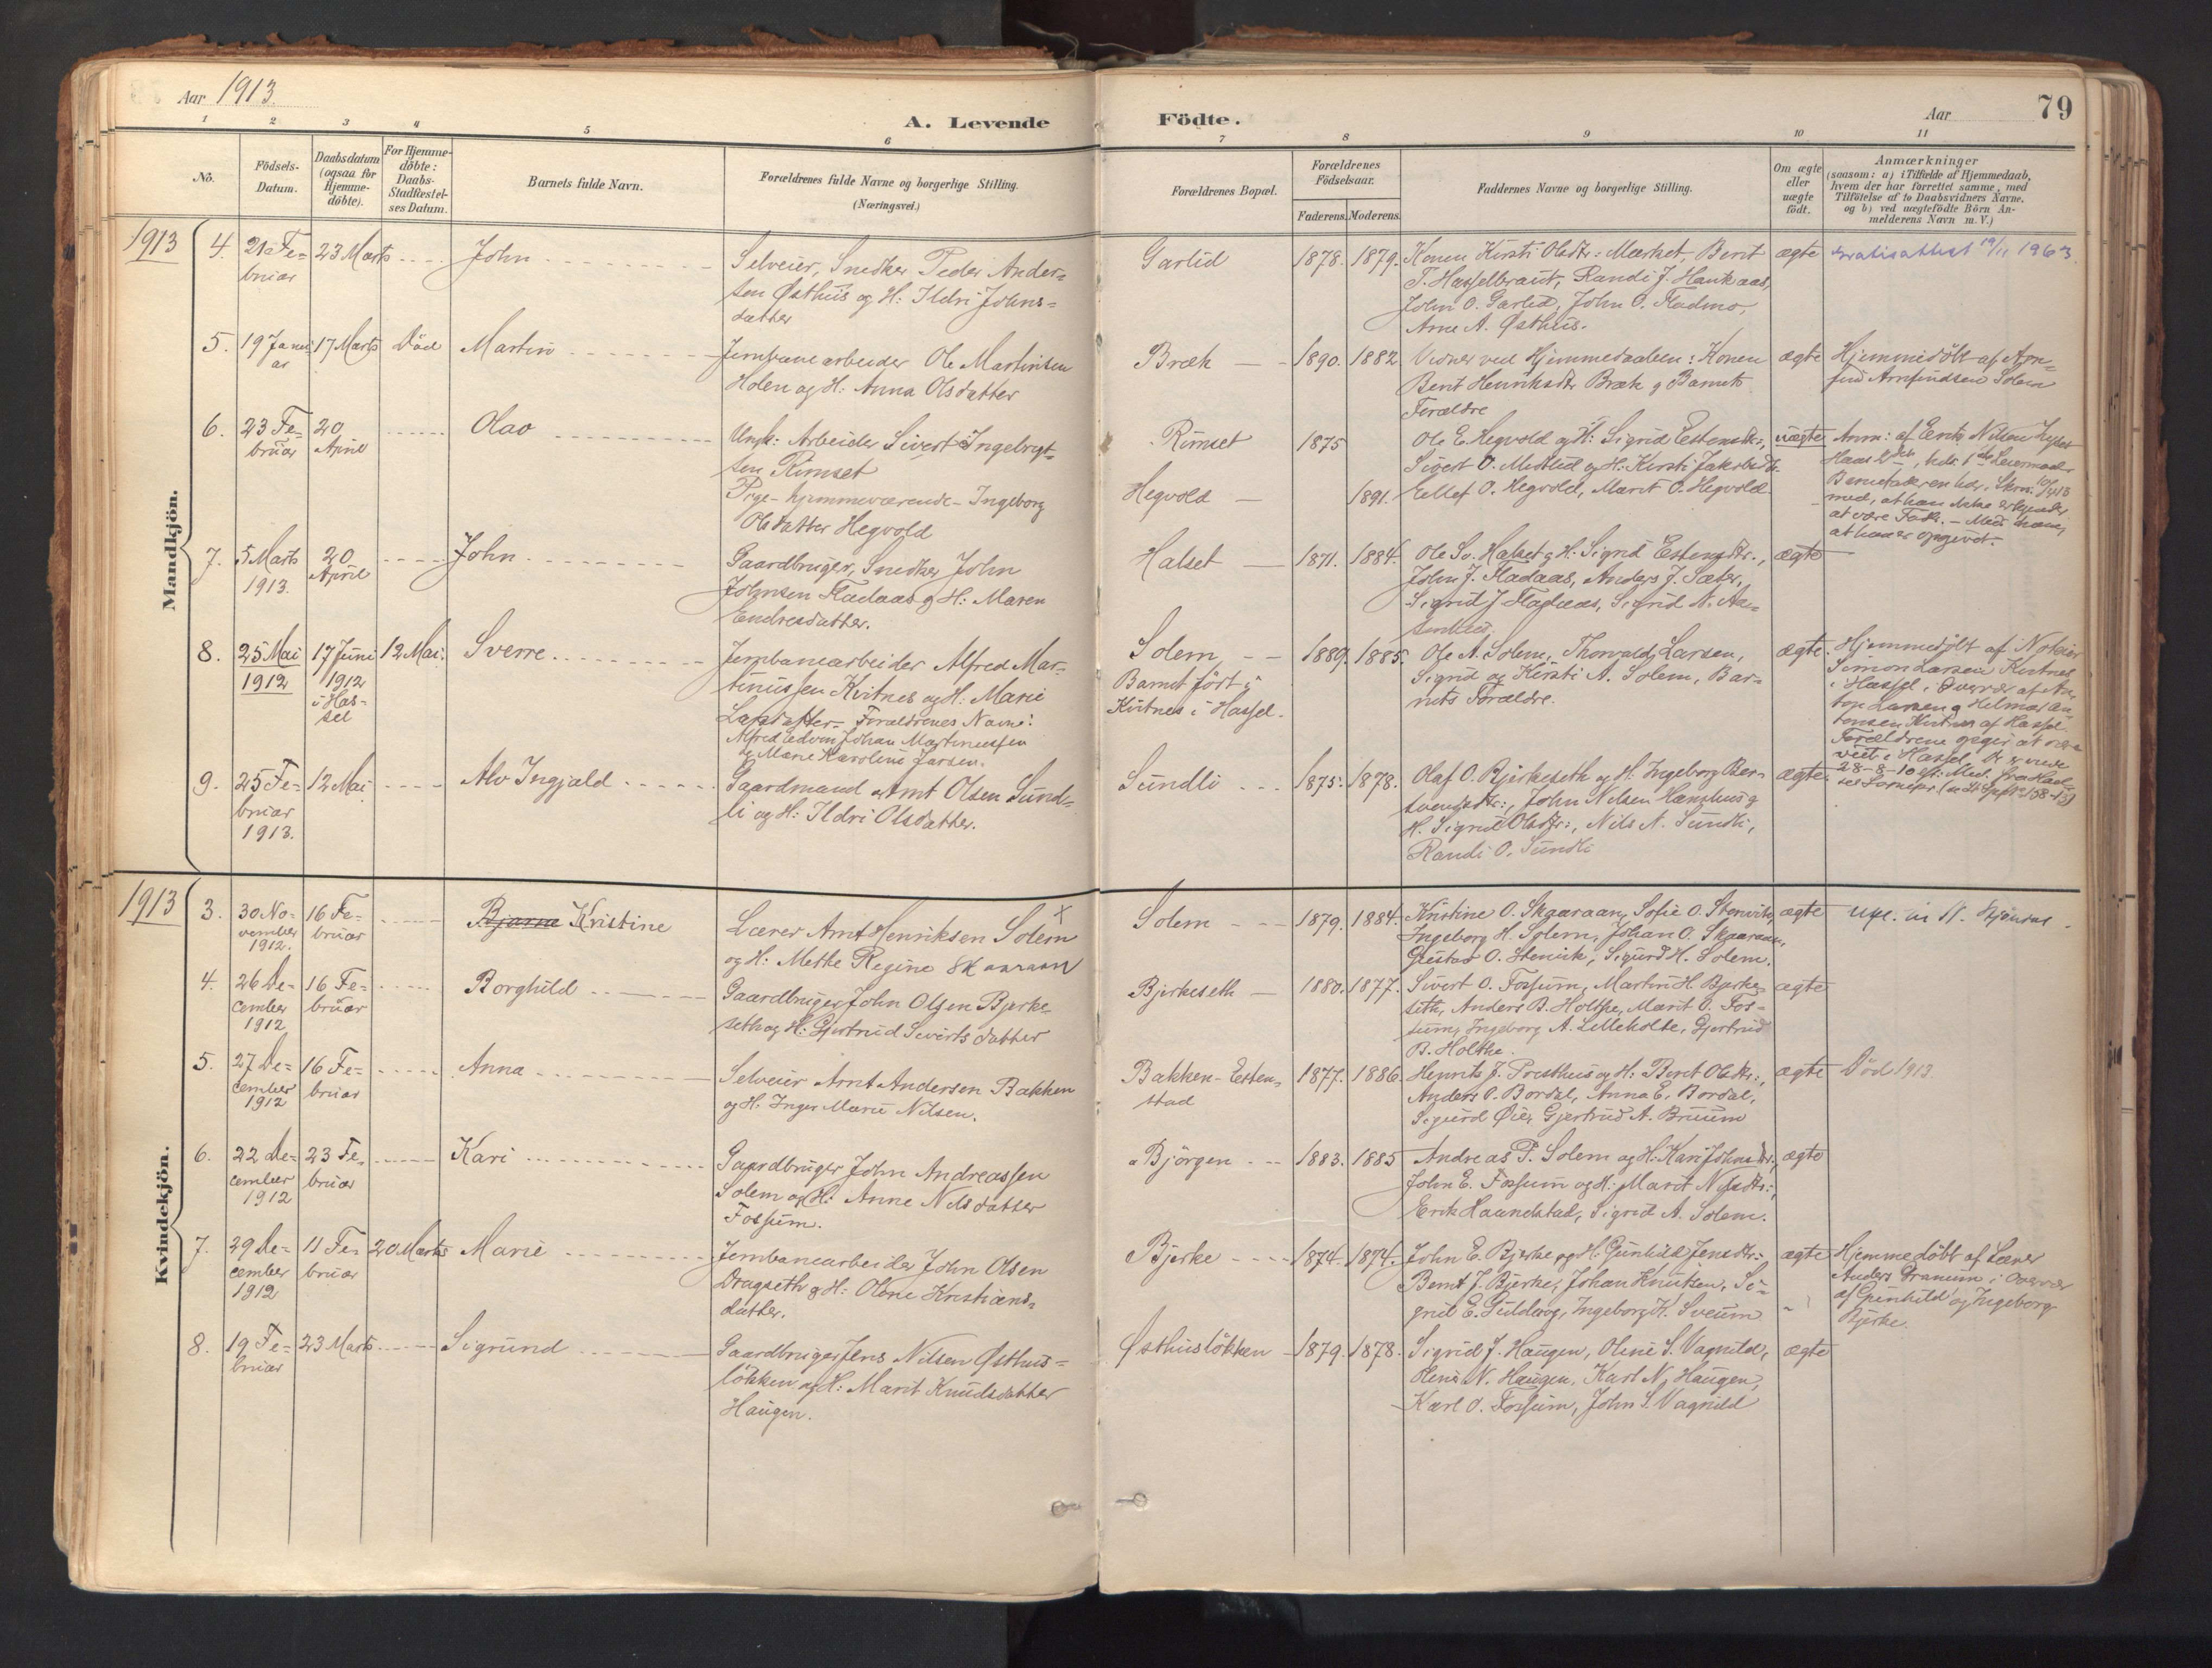 Aar 1913.
A. Levende
Födte.
Aar
79
1
2
3
4
5
6
7
8
9
10
11
No.
Födsels-
Datum.
Daabsdatum
(ogsaa for
Hjemme-
döbte).
For Hjemme-
döbte:
Daabs-
Stadfæstel-
ses Datum.
Barnets fulde Navn.
Forældrenes fulde Navne og borgerlige Stilling.
(Næringsvei.)
Forældrenes Bopæl.
Forældrenes
Födselsaar.
Faderens.
Moderens.
Faddernes Navne og borgerlige Stilling.
Om ægte
eller
uægte
födt.
Anmærkninger
(saasom: a) i Tilfælde af Hjemmedaab,
hvem der har forrettet samme, med
Tilföielse af to Daabsvidners Navne,
og b) ved uægtefödte Börn An-
melderens Navn m. V.)
Mandkjön.
1913
4.
21 Fe-
bruar
23 Marts
John
Selveier, Snedker Peder Ander-
sen Østhus og H: Ildri Johns-
datter
Garlid
1878.
1879.
Konen Kirsti Olsdtr: Mærket, Berit
T. Hasselbraut, Randi J. Haukaas,
John O. Garlid, John O. Fladmo,
Arne A. Østhus.
ægte
Gratisattest 19/11 1963.
5.
19 Janu-
ar
17 Marts
Död
Martin
Jernbanearbeider Ole Martinsen
Holen og H: Anna Olsdatter
Bræk
1890.
1882.
Vidner ved Hjemmedaaben: Konen
Berit Henriksdtr Bræk og Barnets
Forældre
ægte
Hjemmedöbt af Arn-
find Arnfindsen Solem
6.
23 Fe-
bruar
20
April
Olav
Ungk: Arbeider Sivert Ingebrigt-
sen Rimset
Pige - hjemmeværende - Ingeborg
Olsdatter Hegvold
Rimset
Hegvold
1875
1891.
Ole E. Hegvold og H: Sigrid Estensdtr:,
Sivert O. Midtlid og H: Kirsti Jakobsdtr
Ellef O. Hegvold, Marit O. Hegvold.
uægte
Anm: af
med, at han ikke erkjender
at være Fader. - Med
at han er opgivet.
7.
5 Marts
1913.
20
April
John
Gaardbruger, Snedker John
Johnsen Fladaas og H: Maren
Endresdatter.
Halset
1871.
1884.
Ole Sv. Halset og H: Sigrid Estensdtr.,
John J. Fladaas, Anders J. Sæter,
Sigrid J. Fladaas, Sigrid N. Aa-
ægte
8.
25 Mai
1912
17 Juni
1912
i Has-
sel
12 Mai.
Sverre
Jernbanearbeider Alfred Mar-
tinussen Kvitnes og H: Marie
Larsdatter - Forældrenes Navne:
Alfred Edvin Johan Martinussen
og Marie Karoline Larsen.
Solem
Barnet födt i
Kvitnes i Hassel.
1889.
1885.
Ole A. Solem, Thorvald Larsen,
Sigrid og Kirsti A. Solem, Bar-
nets Forældre.
ægte.
Hjemmedöbt af
Simon Larsen Kvitnes
i Hassel i Overvær af An-
ton Larsen og Helmer An-
tonsen Kvitnes af Hassel.
Forældrene opgir at være
viet i Hassel,
28-8-10
9.
25 Fe-
bruar
1913.
12 Mai
Alv Ingjald
Gaardmand Arnt Olsen Sund-
li og H: Ildri Olsdatter.
Sundli
1875.
1878.
Olaf O. Bjerkeseth og H: Ingeborg Ber-
svendsdtr:, John Nilsen Hanshus og
H. Sigrid Olsdtr:, Nils A. Sundli,
Randi O. Sundli
ægte.
Kvindekjön.
1913
3.
30 No-
vember
1912.
16 Fe-
bruar
Bjarne Kristine
Lærer Arnt Henriksen Solem x
og H: Methe Regine Skaaraan
Solem
1879.
1884.
Kristine O. Skaaraan, Sofie O. Stenvik,
Ingeborg H. Solem, Johan O. Skaaraan,
Gustav O. Stenvik, Sigurd H. Solem.
ægte
4.
26 De-
cember
1912
16 Fe-
bruar
Borghild
Gaardbruger John Olsen Bjerke-
seth og H: Gjertrud Sivertsdatter
Bjerkeseth
1880.
1877.
Sivert O. Fossum, Martin H. Bjerke-
seth, Anders B. Holthe, Marit O. Fos-
sum, Ingeborg A. Lilleholte, Gjertrud
B. Holthe.
ægte
5.
27 De-
cember
1912
16 Fe-
bruar
Anna
Selveier Arnt Andersen Bakken
og H: Inger Marie Nilsen.
Bakken-Esten-
stad
1877.
1886.
Henrik J. Presthus og H: Beret Olsdtr:,
Anders O. Bordal, Anna E. Bordal,
Sigurd Øie, Gjertrud A. Bruum
ægte
Död 1913.
6.
22 De-
cember
1912
23 Fe-
bruar
Kari
Gaardbruger John Andreassen
Solem og H: Anne Nilsdatter
Fossum.
Bjørgen
1883.
1885
Andreas P. Solem og H: Kari Johnsdtr:,
John E. Fossum og H: Marit Nilsdtr:,
Erik Haandstad, Sigrid A. Solem.
ægte
7.
29 De-
cember
1912
11 Fe-
bruar
20 Marts
Marie
Jernbanearbeider John Olsen
Dragseth og H: Oline Kristians-
datter.
Bjerke
1874.
1874.
John E. Bjerke og H: Gunhild Jensdtr:
Bernt J. Bjerke, Johan Knutsen, Si-
grid E. Guldberg, Ingeborg K. Sveum
ægte
Hjemmedöbt af Lærer
Anders Granum i Overvær
af Gunhild og Ingeborg
Bjerke.
8.
19 Fe-
bruar
23 Marts
Sigrund
Gaardbruger Jens Nilsen Østhus-
løkken og H: Marit Knudsdatter
Haugen.
Østhusløkken
1879.
1878.
Sigrid J. Haugen, Oline S. Vagnild,
Oline N. Haugen, Karl N. Haugen,
Karl O. Fossum, John S. Vagnild
ægte